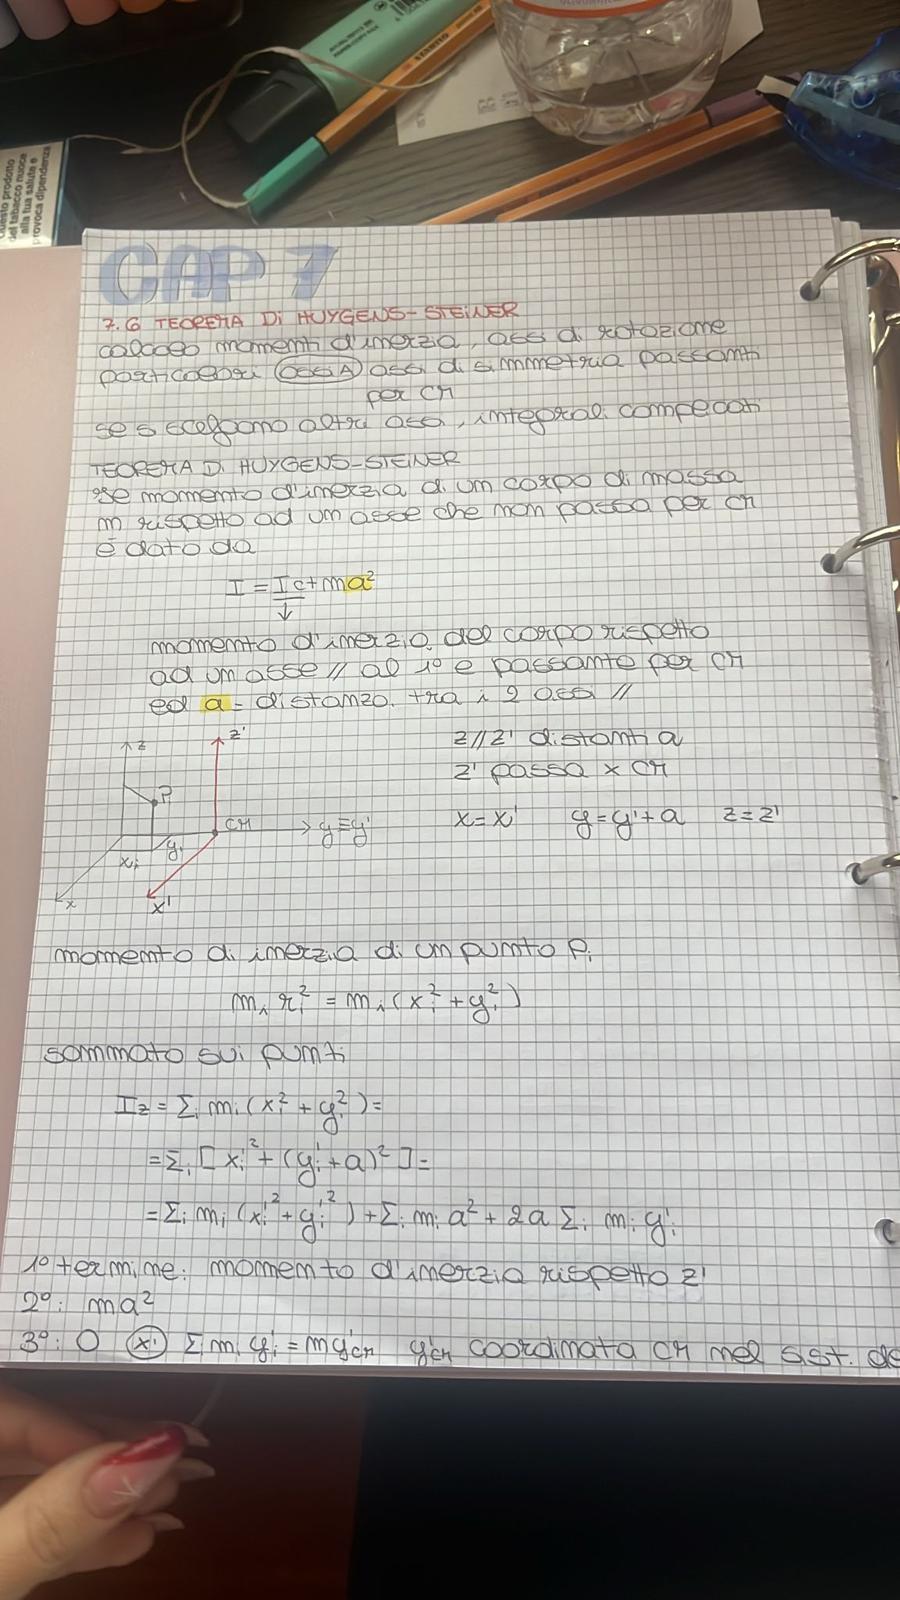 questo prodotto
del tabacco nuoce
alla tua salute e
provoca dipendenza
STABILO
CAP 7
7.6 TEOREMA Di HUYGENS-STEINER
calcolo momenti d'inerzia, assi di rotazione
particolari ossia assi di simmetria passanti
per CM
se si scelgono altri assi, integrali complicati
TEOREMA Di HUYGENS-STEINER
momento d'inerzia di un corpo di massa
m rispetto ad un asse che non passa per CM
è dato da
I = Ic + ma²
↓
momento d'inerzia del corpo rispetto
ad un asse // al 1º e passante per CM
ed a = distanza tra i 2 assi //
z z'
z//z' distanti a
z' passa x CM
Pi
CM y≡y'
x=x' y=y'+a z=z'
xi yi
x x'
momento di inerzia di un punto Pi
mi ri² = mi (xi² + yi²)
sommato sui punti
Iz = Σi mi (xi² + yi²) =
= Σi [xi'² + (yi' + a)²] =
= Σi mi (xi'² + yi'²) + Σi mi a² + 2a Σi mi yi'
1º termine: momento d'inerzia rispetto z'
2º: ma²
3º: 0 Σ mi yi' = my'CM y'CM coordinata CM nel sist.